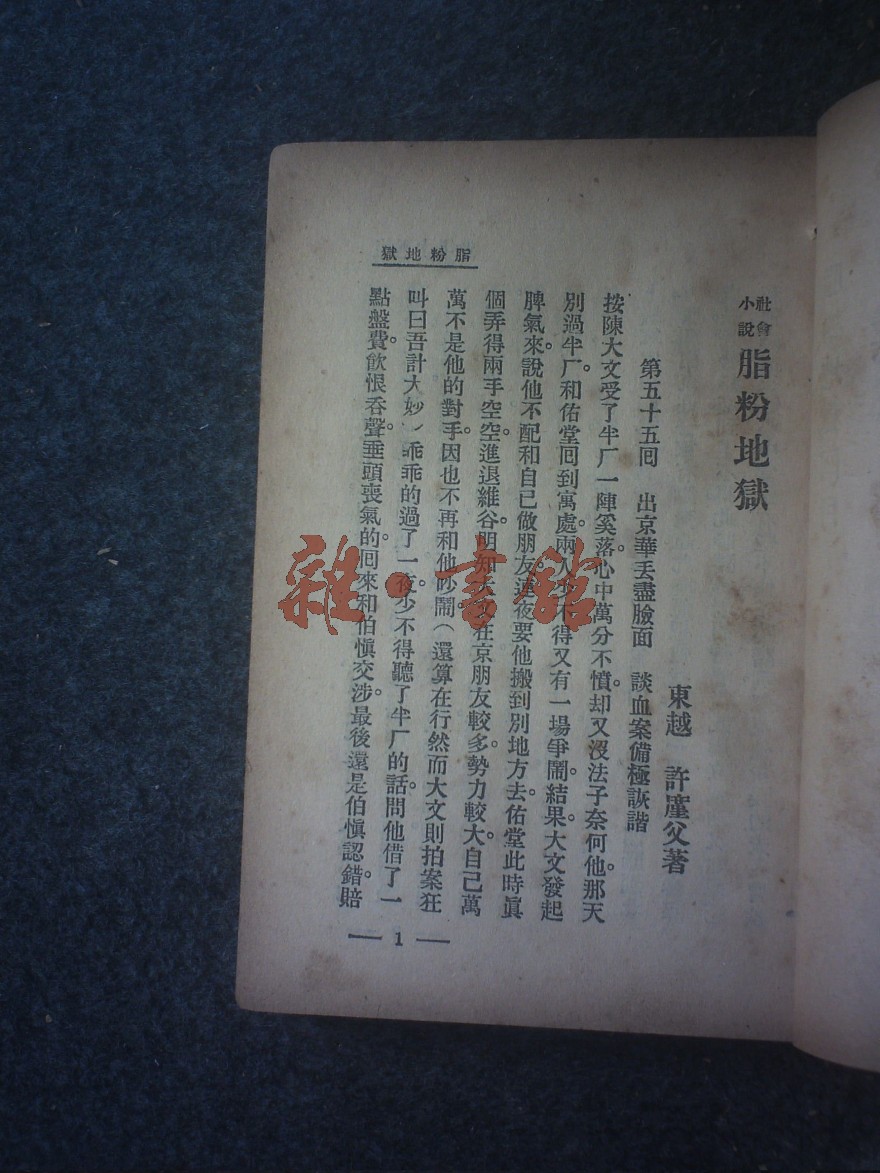 社會小說 脂粉地獄
東越 許廑父著
第五十五回 出京華丟盡臉面 談血案備極詼諧
按陳大文受了半厂一陣奚落。心中萬分不憤。却又沒法子奈何他。那天
別過半厂。和佑堂回到寓處。兩人少不得又有一場爭鬧。結果。大文發起
脾氣來。說他不配和自己做朋友。連夜要他搬到別地方去。佑堂此時眞
個弄得兩手空空。進退維谷。明知大文在京朋友較多。勢力較大。自己萬
萬不是他的對手。因也不再和他吵鬧(還算在行然而大文則拍案狂
叫曰吾計大妙)乖乖的過了一夜。少不得聽了半厂的話。問他借了一
點盤費。飲恨吞聲。垂頭喪氣的回來。和伯愼交涉。最後還是伯愼認錯。賠
脂粉地獄
1
雜·書館